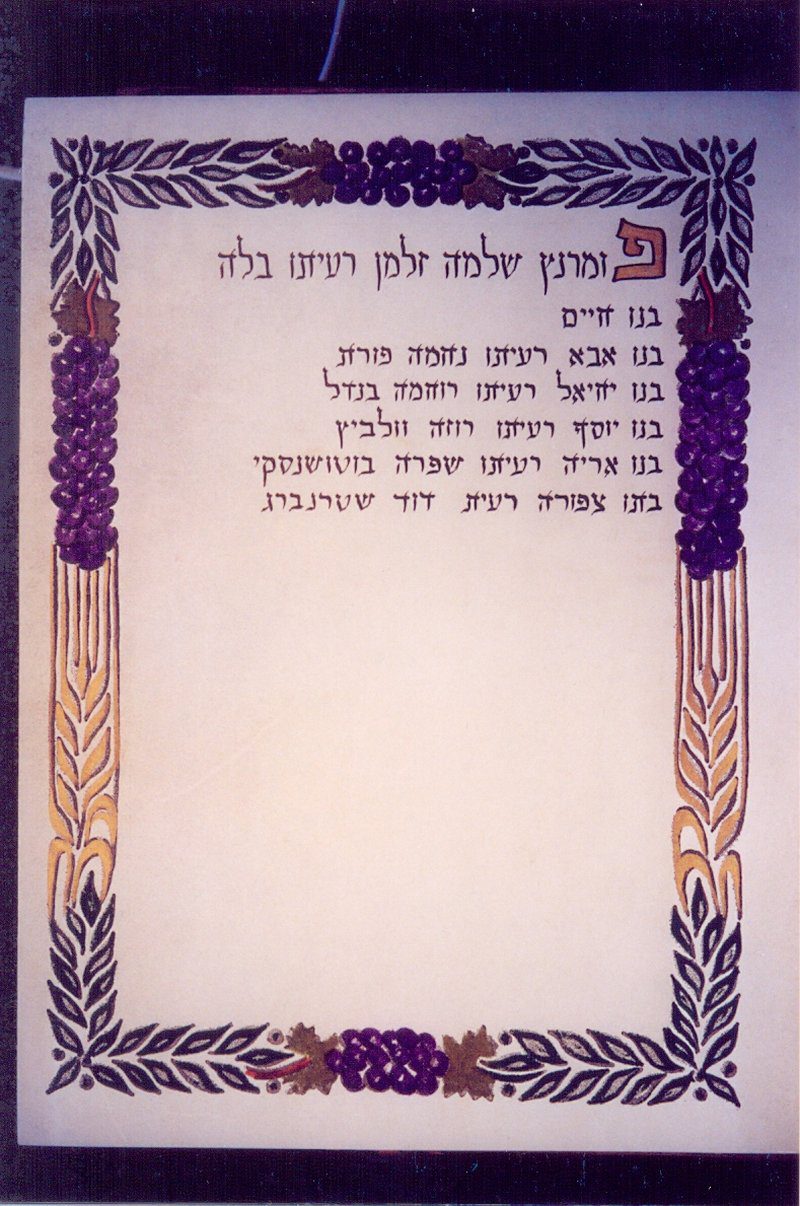 פומרנץ שלמה זלמן רעיתו בלה
בנו חיים
בנו אבא רעיתו נחמה פורת
בנו יחיאל רעיתו רוחמה בנדל
בנו יוסף רעיתו רוזה וולביץ
בנו אריה רעיתו שפרה בוטושנסקי
בתו צפורה רעית דוד שטרנברג